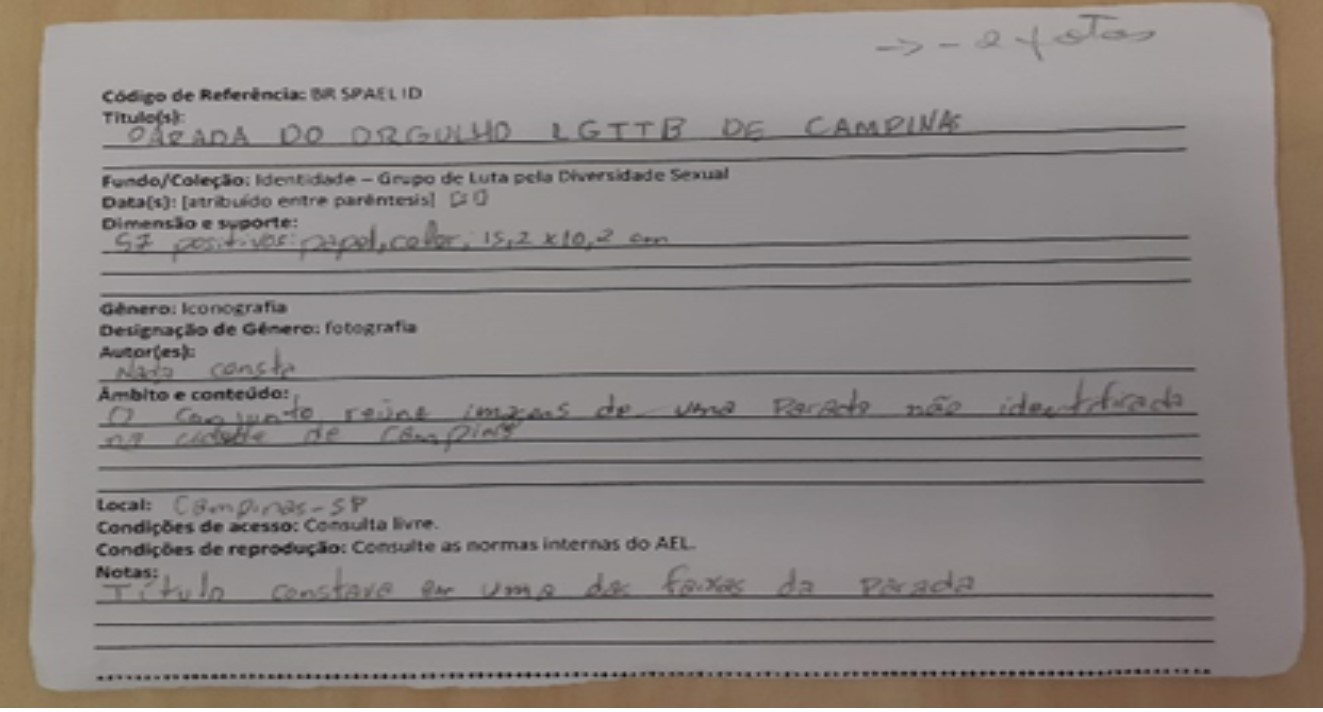 → - 2 fotos
Código de Referência: BR SPAEL ID
Título(s):
PARADA DO ORGULHO LGTTB DE CAMPINAS
Fundo/Coleção: Identidade – Grupo de Luta pela Diversidade Sexual
Data(s): [atribuído entre parêntesis]
Dimensão e suporte:
57 positivos: papel, color, 15,2 x 10,2 cm
Gênero: Iconografia
Designação de Gênero: fotografia
Autor(es):
Nada consta
Âmbito e conteúdo:
O conjunto reúne imagens de uma Parada não identificada
na cidade de Campinas
Local: Campinas-SP
Condições de acesso: Consulta livre.
Condições de reprodução: Consulte as normas internas do AEL.
Notas:
Título constava em uma das faixas da Parada